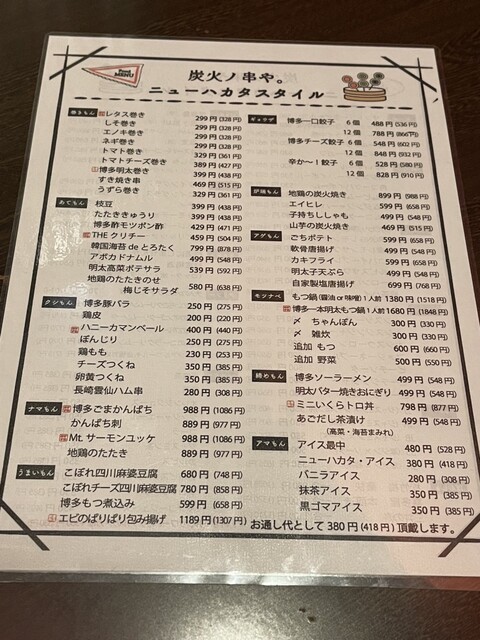 Food MENU
炭火ノ串や。
ニューハカタスタイル
巻きもん
レタス巻き 299円(328円)
しそ巻き 299円(328円)
エノキ巻き 299円(328円)
ネギ巻き 299円(328円)
トマト巻き 329円(361円)
トマトチーズ巻き 389円(427円)
博多明太巻き 399円(438円)
すき焼き串 469円(515円)
うずら巻き 329円(361円)
あてもん
枝豆 399円(438円)
たたききゅうり 399円(438円)
博多酢モツポン酢 429円(471円)
THEクリチー 459円(504円)
韓国海苔deとろたく 799円(878円)
アボカドナムル 499円(548円)
明太高菜ポテサラ 539円(592円)
地鶏のたたきのせ
梅じそサラダ 580円(638円)
クシもん
博多豚バラ 250円(275円)
鶏皮 200円(220円)
ハニーカマンベール 400円(440円)
ぼんじり 250円(275円)
鶏もも 230円(253円)
チーズつくね 350円(385円)
卵黄つくね 350円(385円)
長崎雲仙ハム串 280円(308円)
ナマもん
博多ごまかんぱち 988円(1086円)
かんぱち刺 889円(977円)
Mt.サーモンユッケ 988円(1086円)
地鶏のたたき 889円(977円)
うまいもん
こぼれ四川麻婆豆腐 680円(748円)
こぼれチーズ四川麻婆豆腐 780円(858円)
博多もつ煮込み 599円(658円)
エビのぱりぱり包み揚げ 1189円(1307円)
ギョウザ
博多一口餃子 6個 488円(536円)
12個 788円(866円)
博多チーズ餃子 6個 548円(602円)
12個 848円(932円)
辛か〜!餃子 6個 528円(580円)
12個 828円(910円)
炉端もん
地鶏の炭火焼き 899円(988円)
エイヒレ 599円(658円)
子持ちししゃも 499円(548円)
山芋の炭火焼き 469円(515円)
アゲもん
ごちポテト 599円(658円)
軟骨唐揚げ 499円(548円)
カキフライ 599円(658円)
明太子天ぷら 499円(548円)
自家製塩唐揚げ 699円(768円)
モツナベ
もつ鍋(醤油or味噌)1人前 1380円(1518円)
博多一本明太もつ鍋1人前 1680円(1848円)
〆 ちゃんぽん 300円(330円)
〆 雑炊 300円(330円)
追加 もつ 600円(660円)
追加 野菜 500円(550円)
締めもん
博多ソーラーメン 499円(548円)
明太バター焼きおにぎり 499円(548円)
ミニいくらトロ丼 798円(877円)
あごだし茶漬け 499円(548円)
(高菜・海苔まみれ)
アマもん
アイス最中 480円(528円)
ニューハカタ・アイス 380円(418円)
バニラアイス 280円(308円)
抹茶アイス 350円(385円)
黒ゴマアイス 350円(385円)
お通し代として380円(418円)頂戴します。